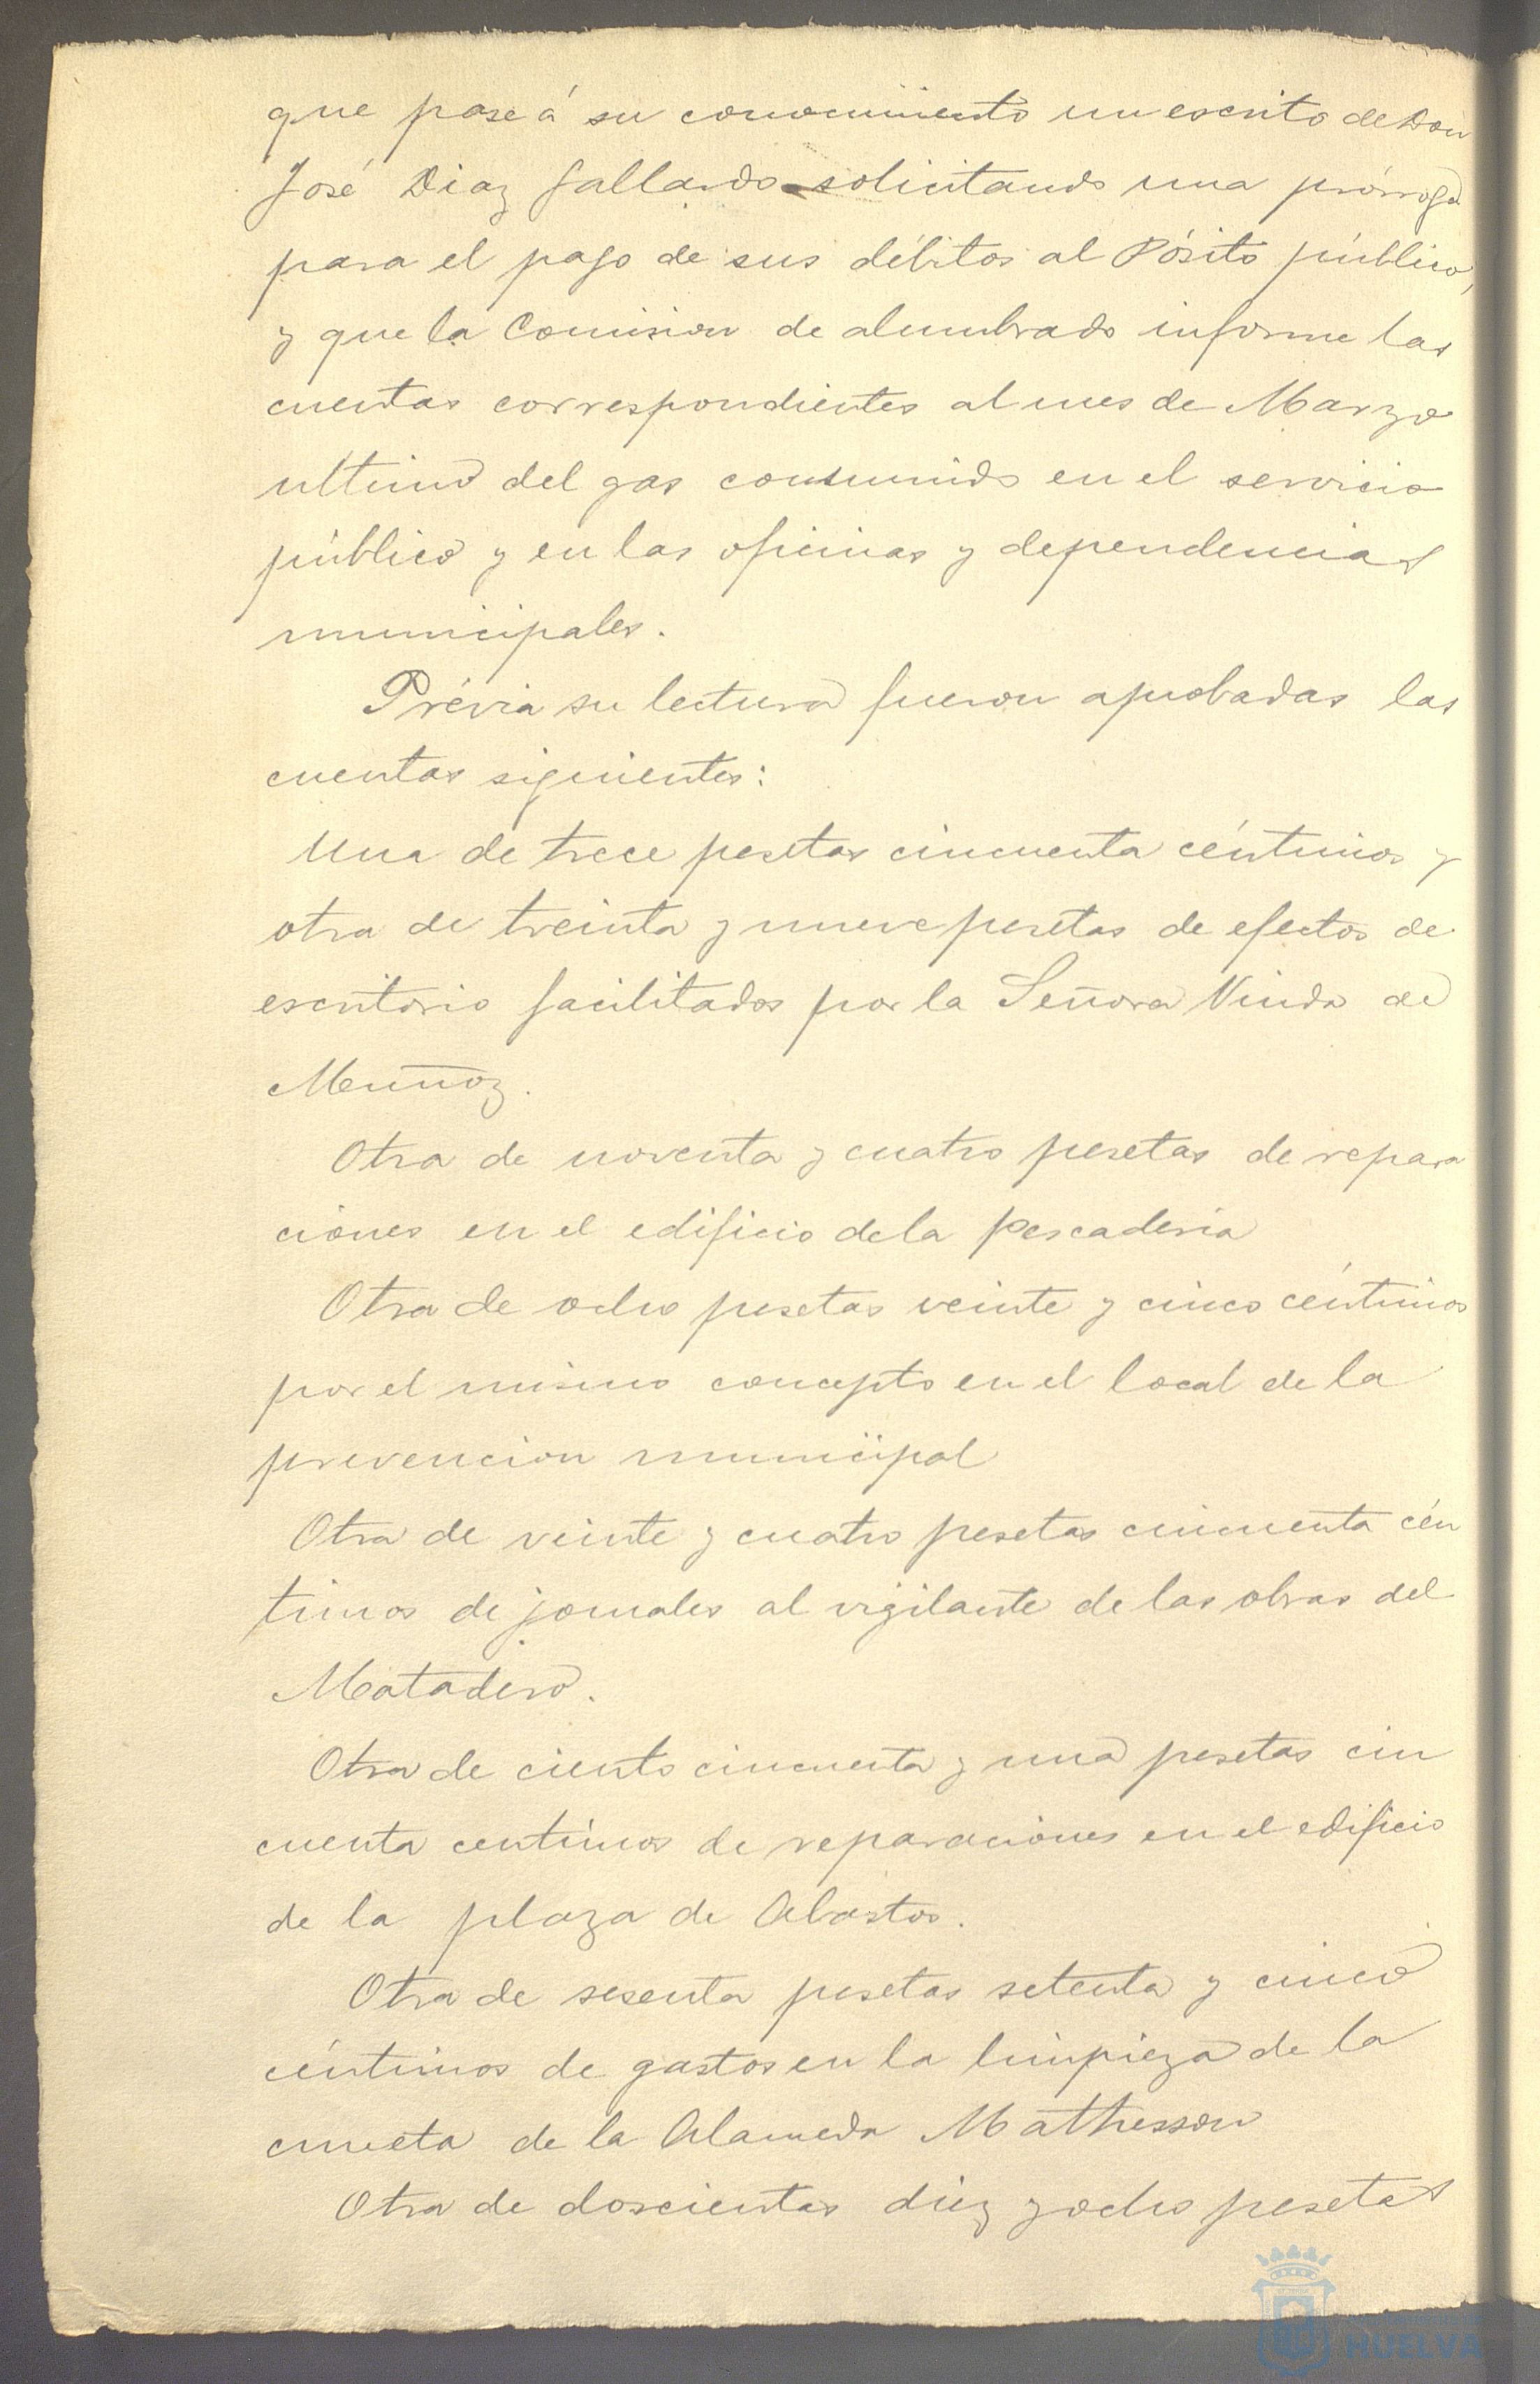 que pase á su conocimiento un escrito de Don
José Diaz Gallardo solicitando una prórroga
para el pago de sus débitos al Pósito público,
y que la Comision de alumbrado informe las
cuentas correspondientes al mes de Marzo
ultimo del gas consumido en el servicio
público y en las oficinas y dependencias
municipales.
Prévia su lectura fueron aprobadas las
cuentas siguientes:
Una de trece pesetas cincuenta céntimos y
otra de treinta y nueve pesetas de efectos de
escritorio facilitados por la Señora Viuda de
Muñoz.
Otra de noventa y cuatro pesetas de repara
ciones en el edificio de la Pescaderia
Otra de ocho pesetas veinte y cinco céntimos
por el mismo concepto en el local de la
prevencion municipal
Otra de veinte y cuatro pesetas cincuenta cén
timos de jornales al vigilante de las obras del
Matadero.
Otra de ciento cincuenta y una pesetas cin
cuenta centimos de reparaciones en el edificio
de la plaza de Abastos.
Otra de sesenta pesetas setenta y cinco
céntimos de gastos en la limpieza de la
cuneta de la Alameda Mathesson
Otra de doscientas diez y ocho pesetas
HUELVA